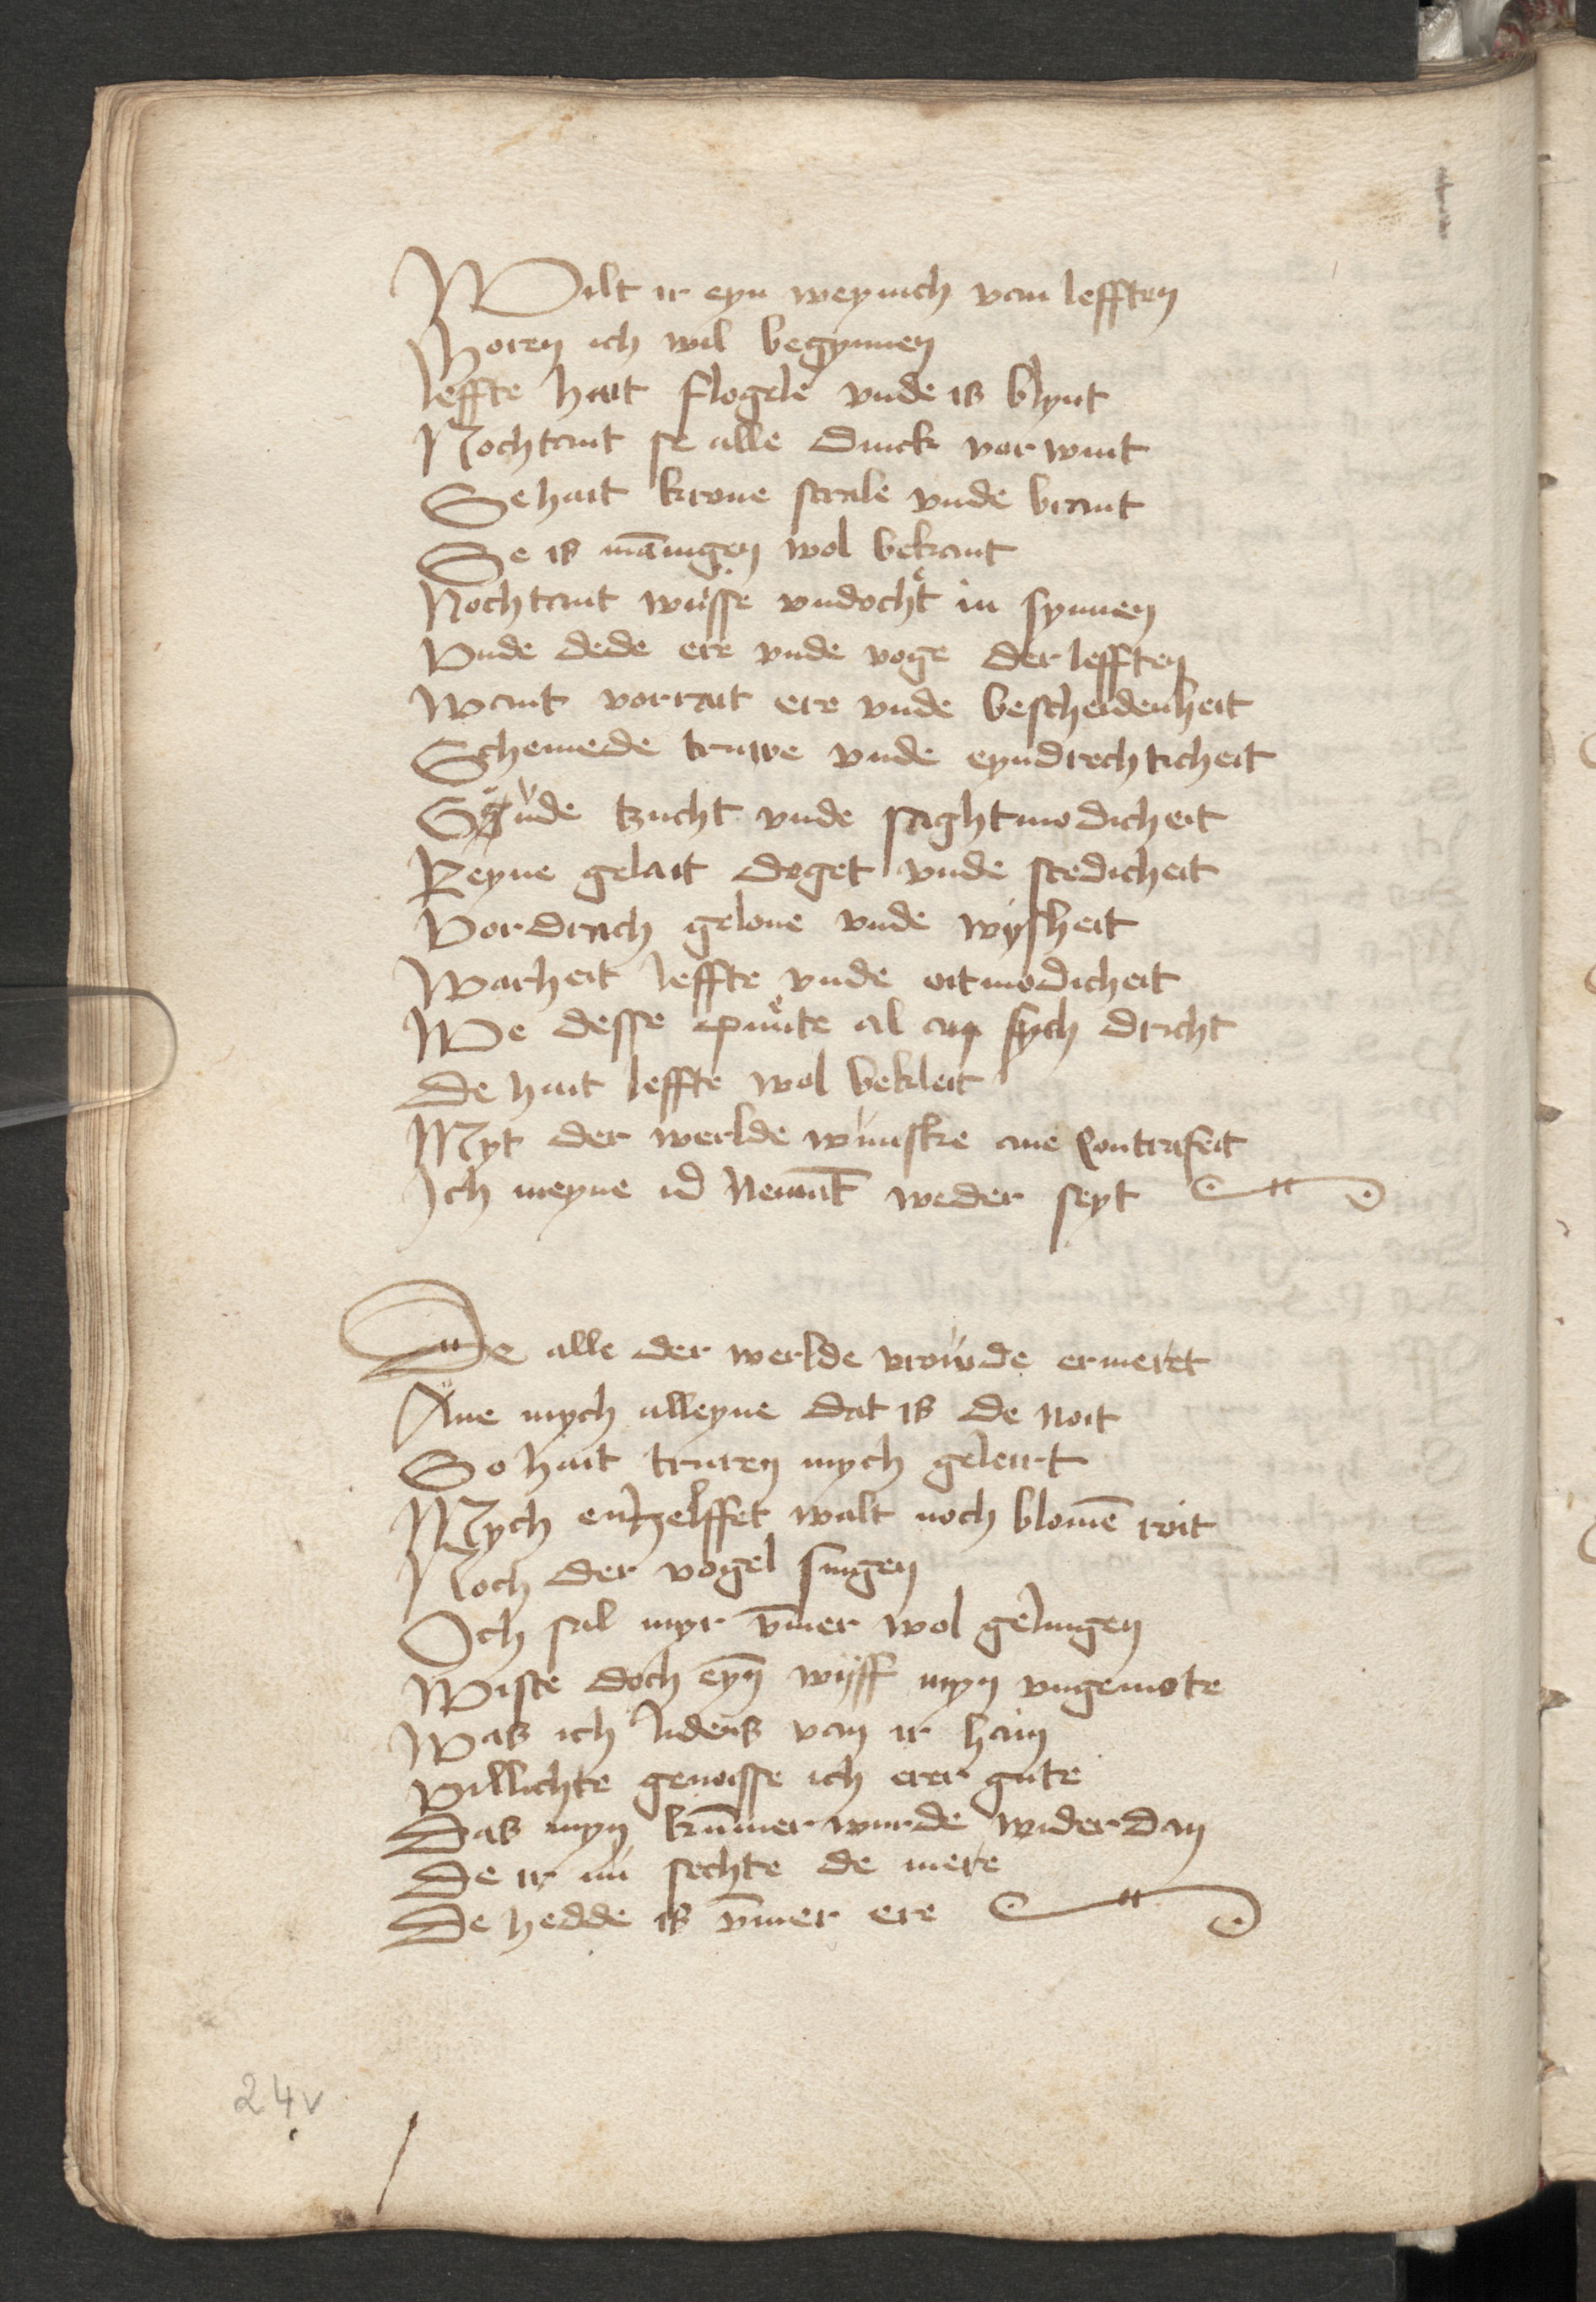 Wilt ir eyn weynich van lefften
Horen ich wil begynnen
leffte hait flogele vnde is blynt
Nochtant se alle dinck vorwint
Se hait krone strale vnde brant
Se is māningen wol bekant
Nochtant wüsse vndocht in synnen
Vnde dede ere vnde voge der lefften
Want vorrait ere vnde bescheidenheit
Schemede truwe vnde eyndrechticheit
tzucht vnde saghtmodicheit
Reyne gelait doget vnde stedicheit
Vordrach gelove vnde wysheit
Warheit leffte vnde oitmodicheit
We desse punte al an sych dricht
De hait leffte wol bekleit
Myt der werlde wunske ane contrafeit
Ich meyne id nemāt weder seyt
De alle der werlde vrowde ermeret
Ane mych alleyne dat is de noit
So hait truren mych geleirt
Mych enhelffet walt noch blomē roit
Noch der vogel singen
Och sal myr v̄mer wol gelingen
Wiste doch eyn wyff myn vngemote
Was ich lidens van ir hain
Villichte genoisse ich erer gute
Das myn kūmer wurde widerdan
De ir nu sechte de mere
De hedde is v̄mer ere
24v